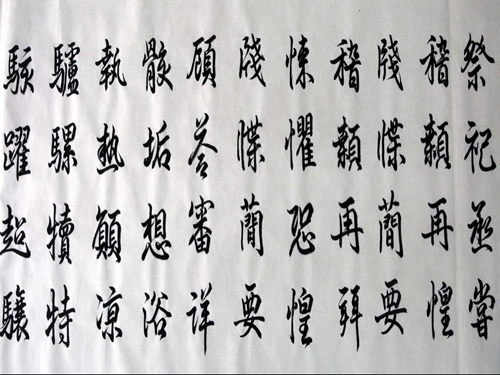 祭祀烝嘗
稽顙再惶
牋牒簡要
稽顙再拜
悚懼恐惶
牋牒簡要
顧荅審詳
骸垢想浴
執熱願涼
驢騾犢特
駭躍超驤